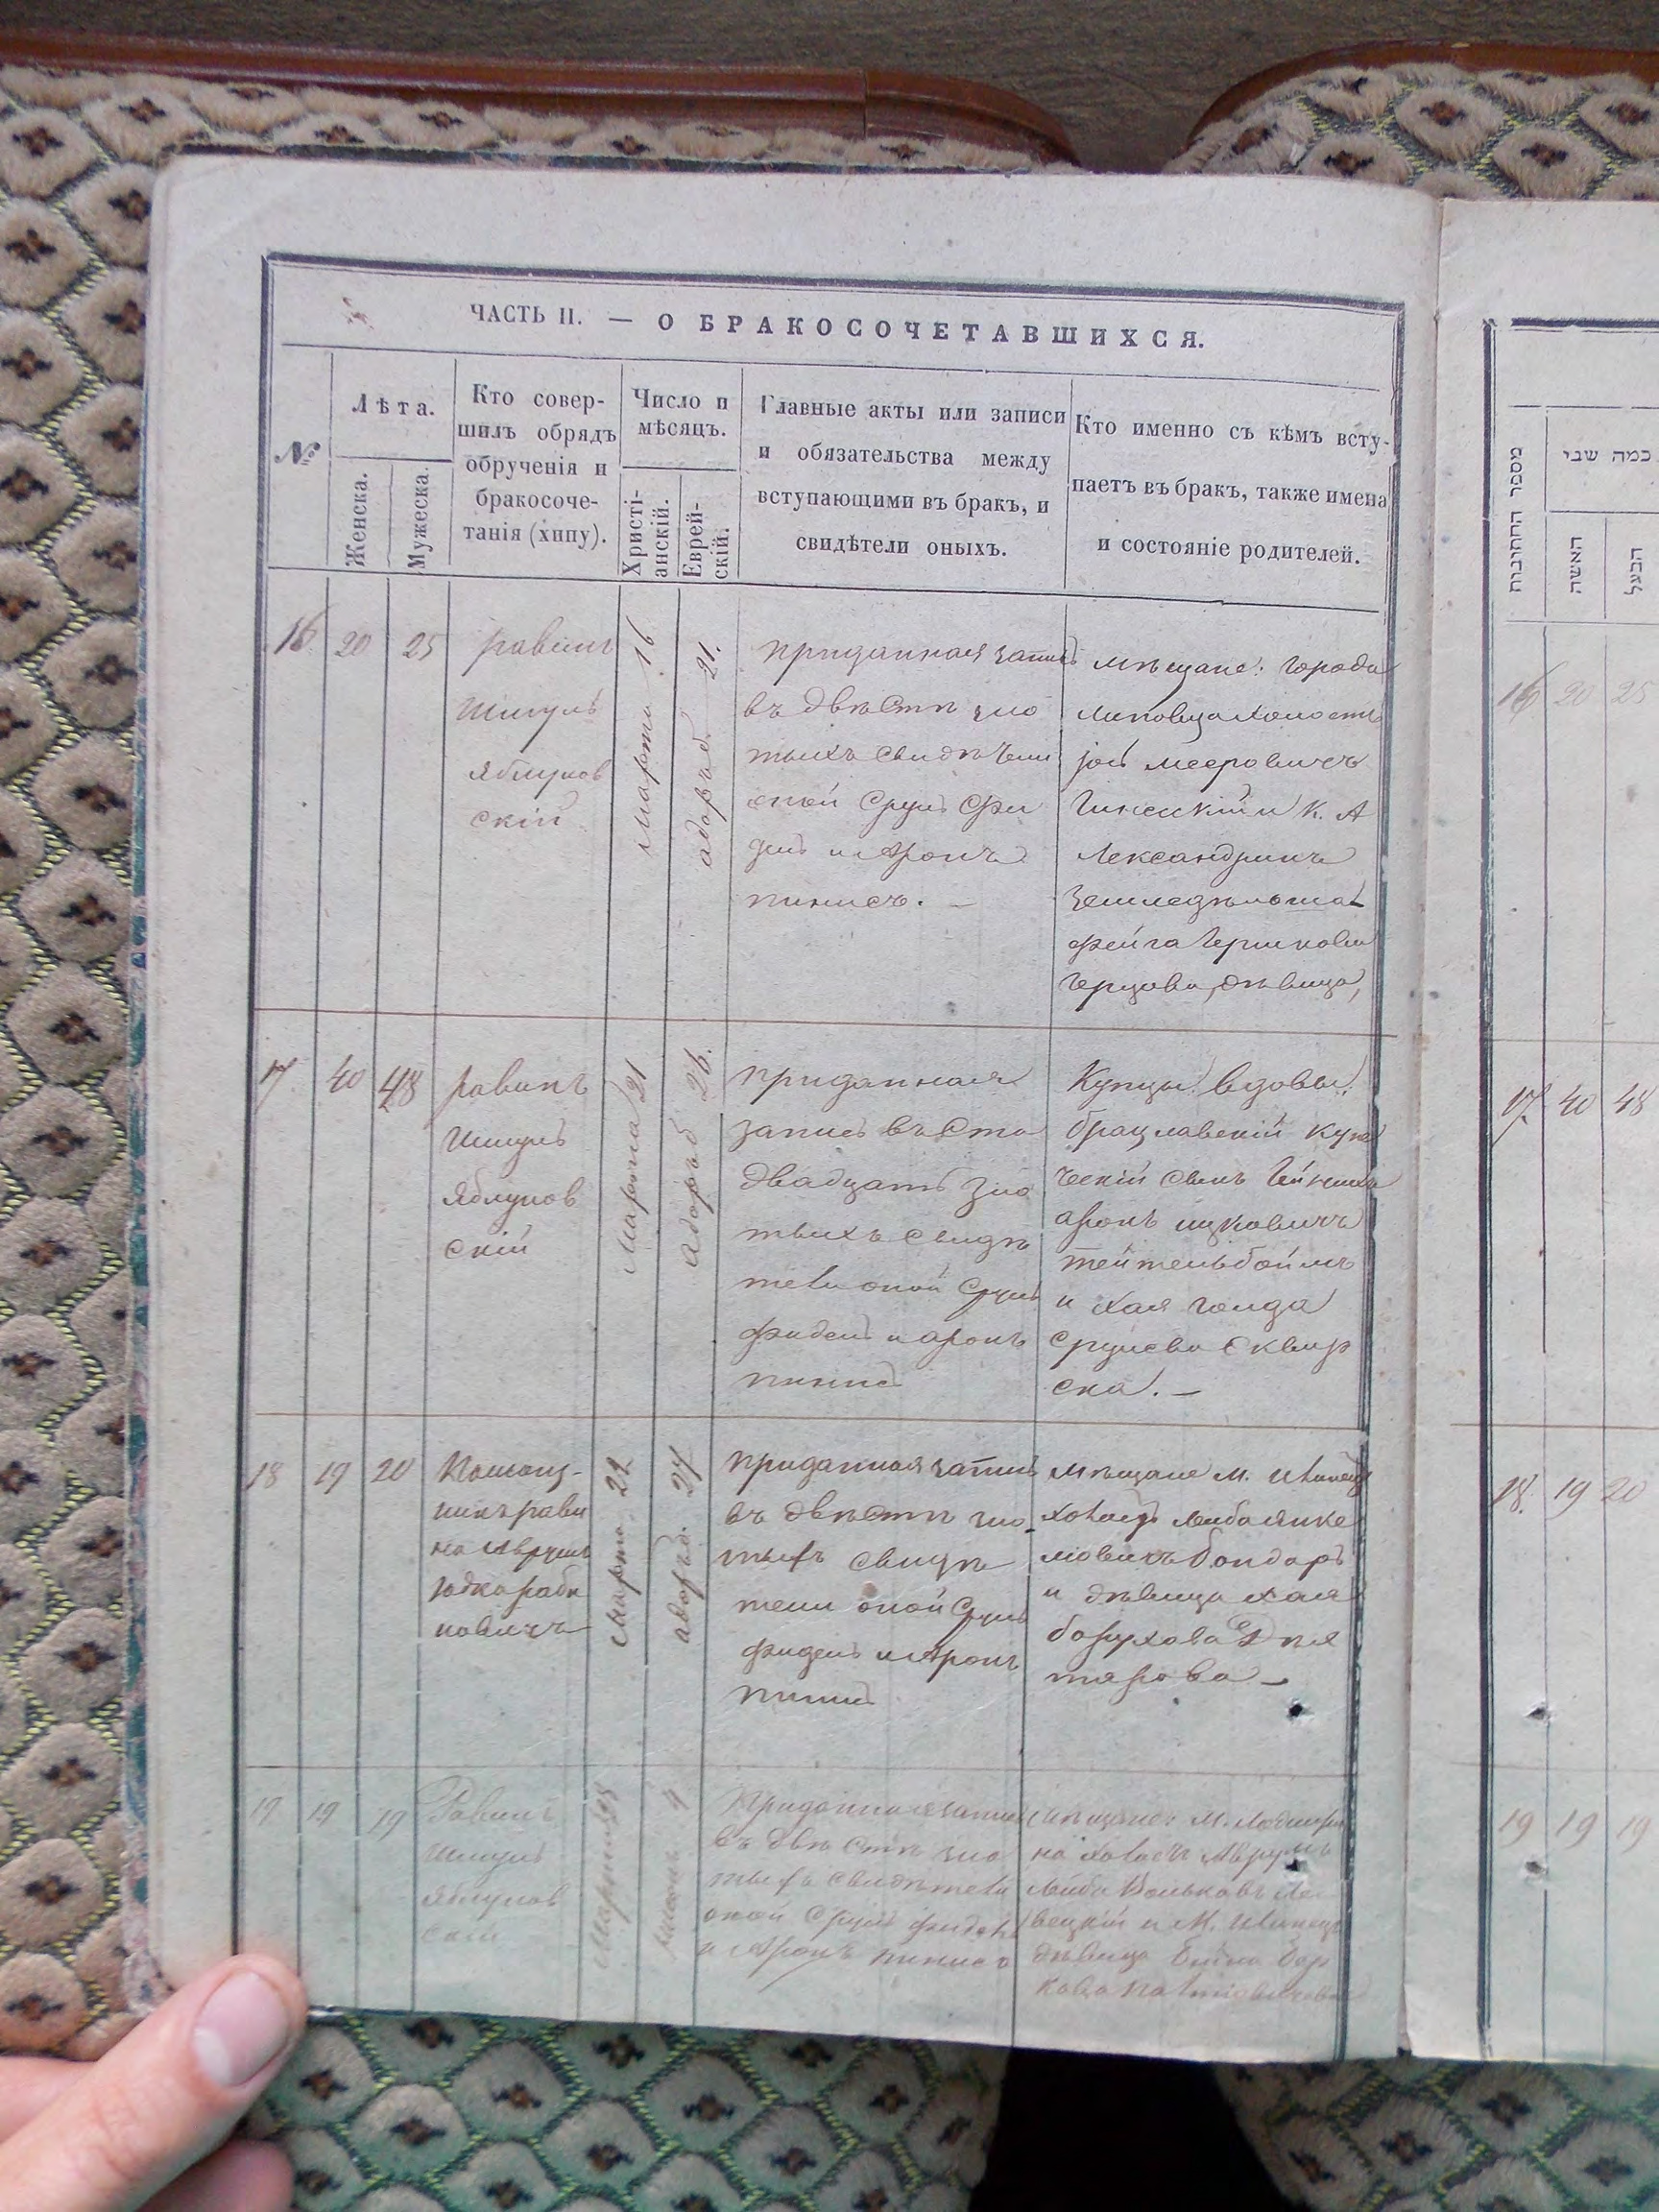 ЧАСТЬ II. — О БРАКОСОЧЕТАВШИХСЯ.
№
Лѣта.
Женска.
Мужеска.
Кто совер-
шилъ обрядъ
обрученія и
бракосоче-
танія (хипу).
Число и
мѣсяцъ.
Христі-
анскій.
Еврей-
скій.
Главные акты или записи
и обязательства между
вступающими въ бракъ, и
свидѣтели оныхъ.
Кто именно съ кѣмъ всту-
паетъ въ бракъ, также имена
и состояніе родителей.
16 20 25
равинъ
Шмуль
Яблунов
скій
Марта 16
адаръ 21.
приданная запись
въ двѣсти зло
тыхъ свидѣтели
оной Сруль Фи
дель и Аронъ
пинисъ. —
мѣщане: города
Липовца холостъ
Мееровичъ
и К. А
лександринъ
Фейга Гершкова
дѣвица,
17 40 48
равинъ
Шмуль
Яблунов
скій
Марта 21
Адаръ 26.
приданная
запись въ сто
двадцать зло
тыхъ свидѣ
тели оной Сруль
фидель и аронъ
пинисъ
Купцы вдовы:
брацлавскій купе
ческій сынъ
аронъ ицковичъ
тейтельбоймъ
и Хая голда
Срулева Сквир
ска. —
18 19 20
Помощ-
никъ рави
на Аврумъ
Юдко раби
новичъ
Марта 22
адаръ 27
приданная запись
въ двѣсти зло
тыхъ свидѣ
тели оной Сруль
фидель и Аронъ
пинисъ
мѣщане м. Илинецъ
холостъ Лейба Янке
лювичъ бондаръ
и дѣвица Хая
борухова Дня
тярова —
19 19 19
Равинъ
Шмуль
Яблунов
скій
Марта
4
Приданная запись
въ двѣ сти зло
тыхъ свидѣтели
оной Сруль фидель
и Аронъ пинисъ
Мѣщане: м.
на холостъ Аврумъ
Лейба
и М. Илинецъ
дѣвица Бер
кова
מספר החתונות
כמה שני
האשה
הבעל
16 20 25
17 40 48
18. 19 20
19 19 19